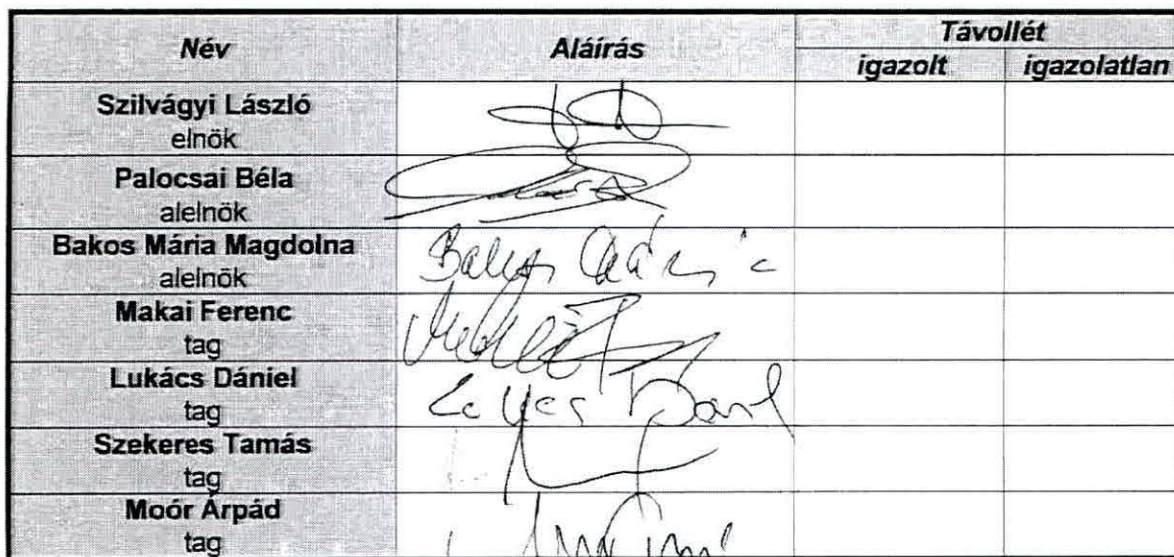 Név Aláírás Távollét
igazolt igazolatlan
Szilvágyi László
elnök
Palocsai Béla
alelnök
Bakos Mária Magdolna
alelnök
Bakos Mária
Makai Ferenc
tag
Lukács Dániel
tag
Szekeres Tamás
tag
Moór Árpád
tag